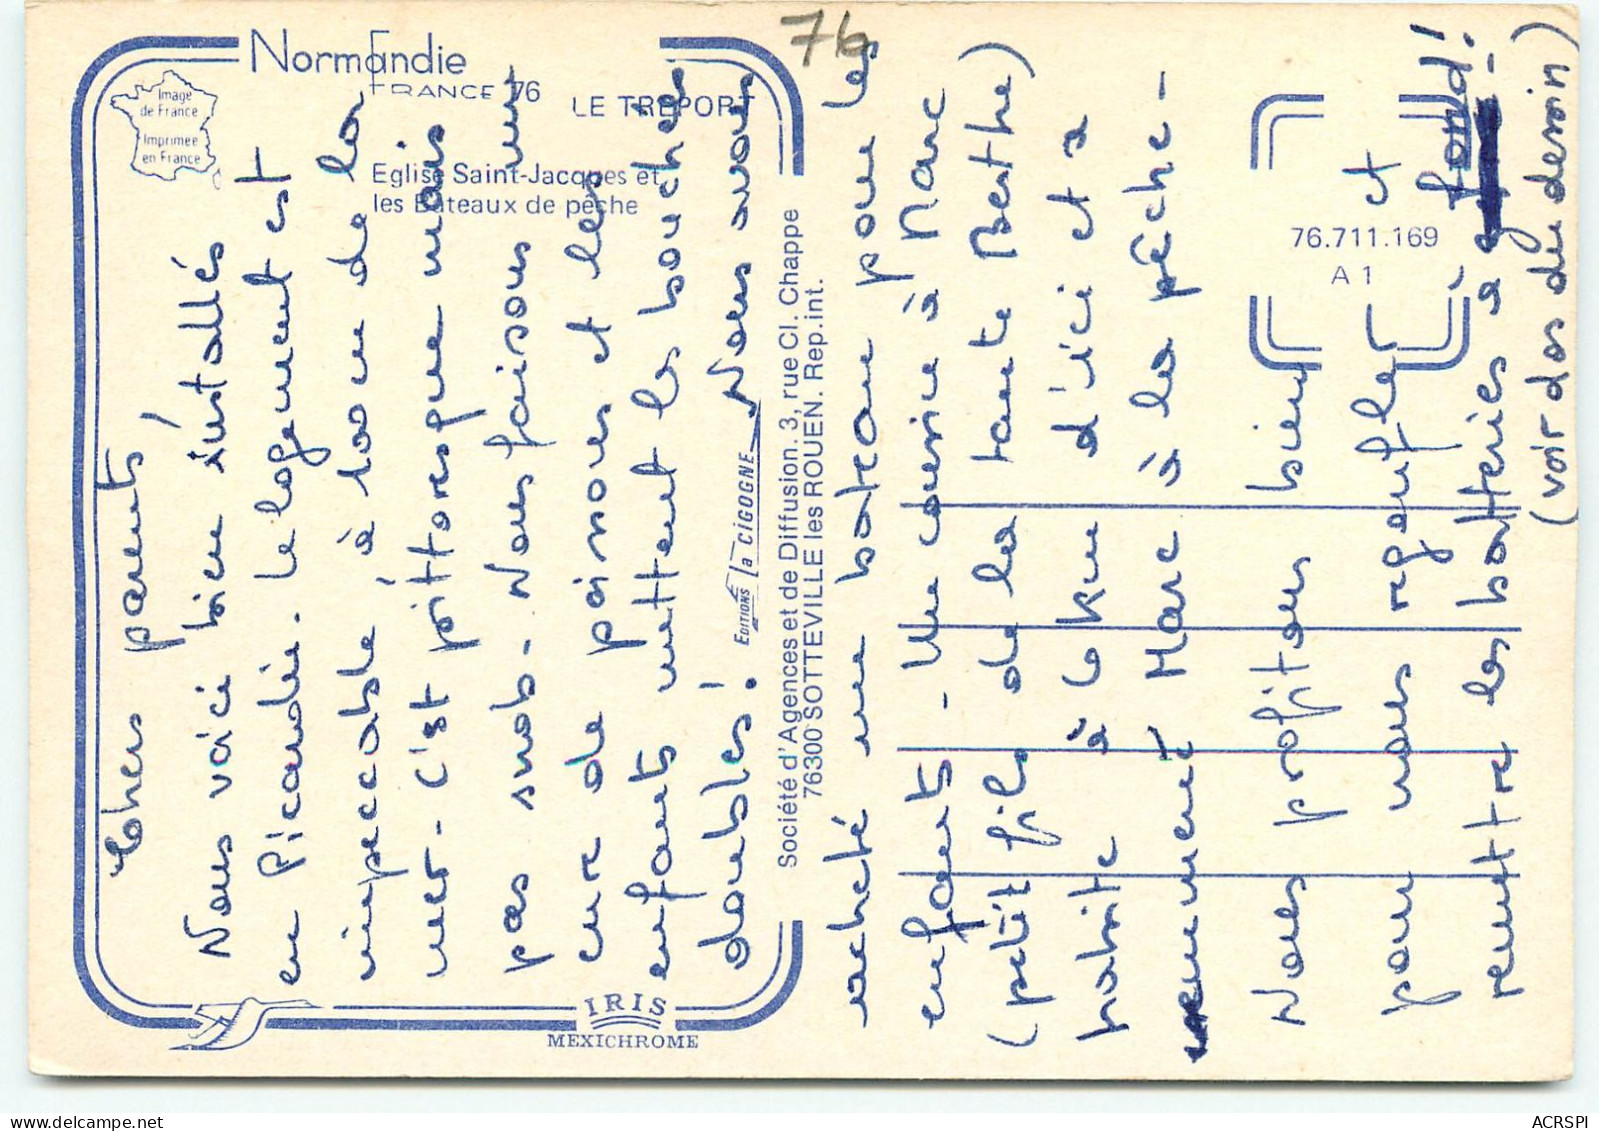 Normandie
FRANCE 76
LE TREPORT
Image
de France
Imprimée
en France
Eglise Saint-Jacques et
les Bateaux de pêche
76
76.711.169
A 1
Editions la CIGOGNE
Société d'Agences et de Diffusion. 3, rue Cl. Chappe
76300 SOTTEVILLE les ROUEN. Rep.int.
IRIS
MEXICHROME
Chers parents
Nous voici bien installés
en Picardie. Le logement est
impeccable, à 100 m de la
mer. C'est pittoresque mais
pas snob. Nous faisons une
cure de poissons et les
enfants mettent les bouchées
doubles! Nous avons
acheté un bateau pour les
enfants. Un cousin à Marc
(petit fils de la tante Berthe)
habite à 6 km d'ici et a
emmené Marc à la pêche.
Nous profitons bien
pour nous regonfler et
remettre les batteries à fond!
(voir dos du dessin)
ACRSPI